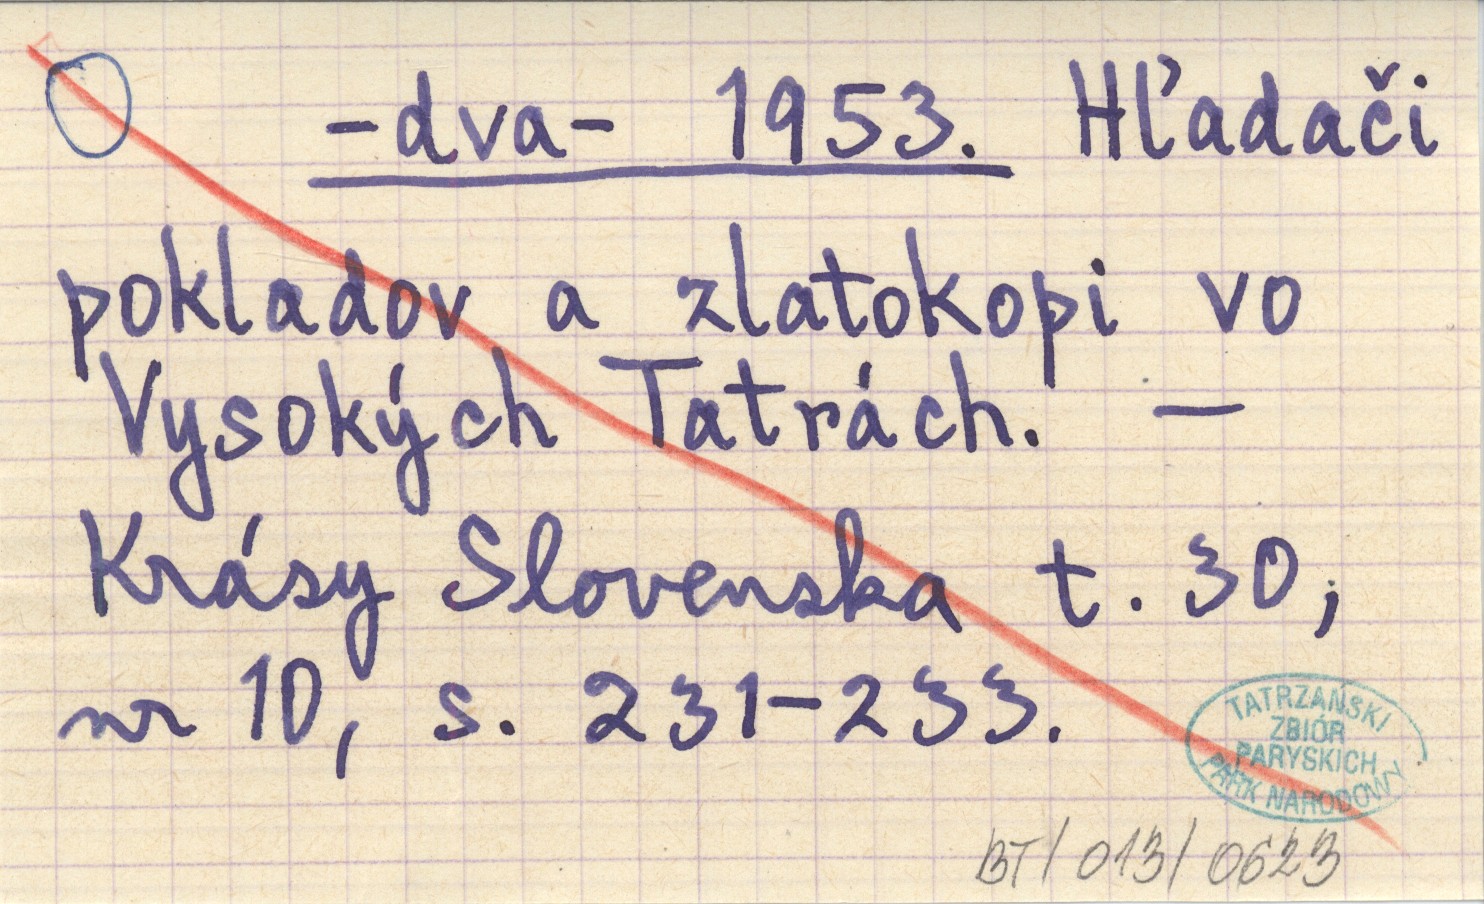 -dva- 1953. Hľadači
pokladov a zlatokopi vo
Vysokých Tatrách. —
Krásy Slovenska t. 30;
nr 10, s. 231-233.
TATRZAŃSKI
ZBIÓR
PARYSKICH
PARK NARODOWY
BT/013/0623